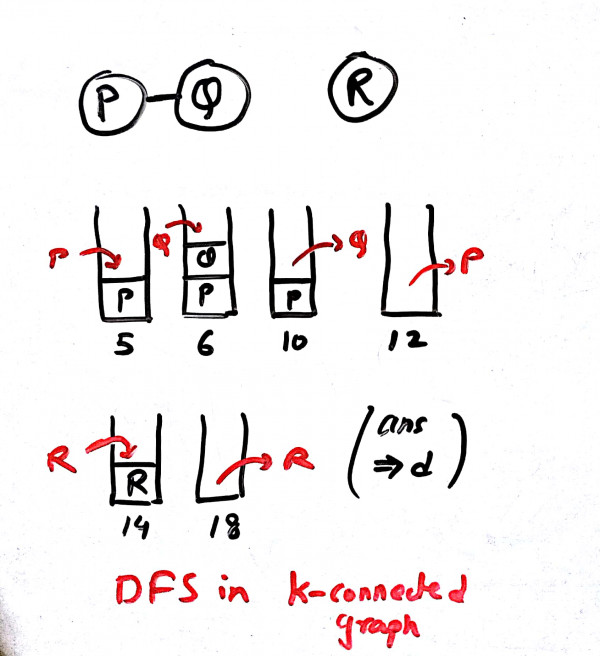 P Q R
P Q Q P
Q
P P P
5 6 10 12
R R ans
R ⇒ d
14 18
DFS in k-connected
graph